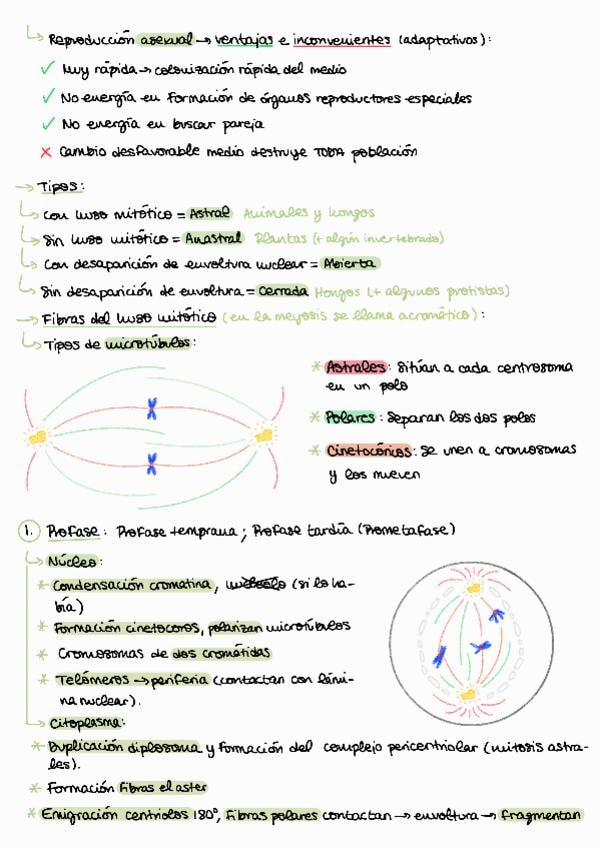 Reproducción asexual → ventajas e inconvenientes (adaptativos):
✓ Muy rápida → colonización rápida del medio
✓ No energía en formación de órganos reproductores especiales
✓ No energía en buscar pareja
✗ Cambio desfavorable medio destruye TODA población
→ Tipos:
Con huso mitótico = Astral Animales y hongos
Sin huso mitótico = Anastral Plantas (+ algún invertebrado)
Con desaparición de envoltura nuclear = Abierta
Sin desaparición de envoltura = Cerrada Hongos (+ algunos protistas)
→ Fibras del huso mitótico (en la meyosis se llama acromático):
Tipos de microtúbulos:
* Astrales: Sitúan a cada centrosoma
en un polo
* Polares: Separan los dos polos
* Cinetocóricos: Se unen a cromosomas
y los mueven
1. Profase: Profase temprana; Profase tardía (Prometafase)
Núcleo:
* Condensación cromatina, (si lo ha-
bía)
* Formación cinetocoros, polarizan microtúbulos
* Cromosomas de dos cromátidas
* Telómeros → periferia (contactan con lámi-
na nuclear).
Citoplasma:
* Duplicación diplosoma y formación del complejo pericentriolar (mitosis astra-
les).
* Formación fibras el aster
* Emigración centriolos 180°, Fibras polares contactan → envoltura → fragmentan